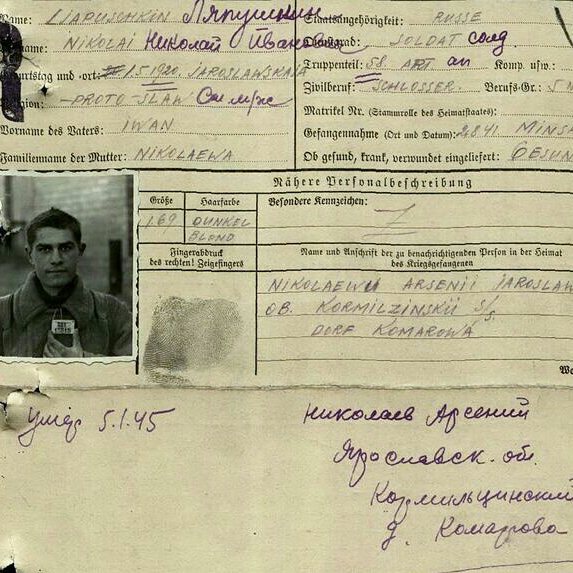 Name: LIAPUSCHKIN Ляпушкин
Staatsangehörigkeit: RUSSE
name: NIKOLAI Николай Иванович
Dienstgrad: SOLDAT солд.
Truppenteil: 58. ART ап Komp. usw.:
Geburtstag und -ort: 1.5.1920. JAROSLAWSKAJA
Zivilberuf: SCHLOSSER. Berufs-Gr.: 5
Religion: PROTO-SLAW
Matrikel Nr. (Stammrolle des Heimatstaates)
Vorname des Vaters: IWAN
Gefangennahme (Ort und Datum): 2.8.41 MINSK
Familienname der Mutter: NIKOLAEWA
Ob gesund, krank, verwundet eingeliefert: GESUN
Nähere Personalbeschreibung
Größe
Haarfarbe
Besondere Kennzeichen:
1.69
DUNKEL
BLOND
Fingerabdruck
des rechten! Zeigefingers
Name und Anschrift der zu benachrichtigenden Person in der Heimat
des Kriegsgefangenen
NIKOLAEWU ARSENII JAROSLAW
OB. KORMILZINSKII S/S
DORF KOMAROWA
We
Умер 5.1.45
Николаев Арсений
Ярославск. об.
Кормильцинский
д. Комарова